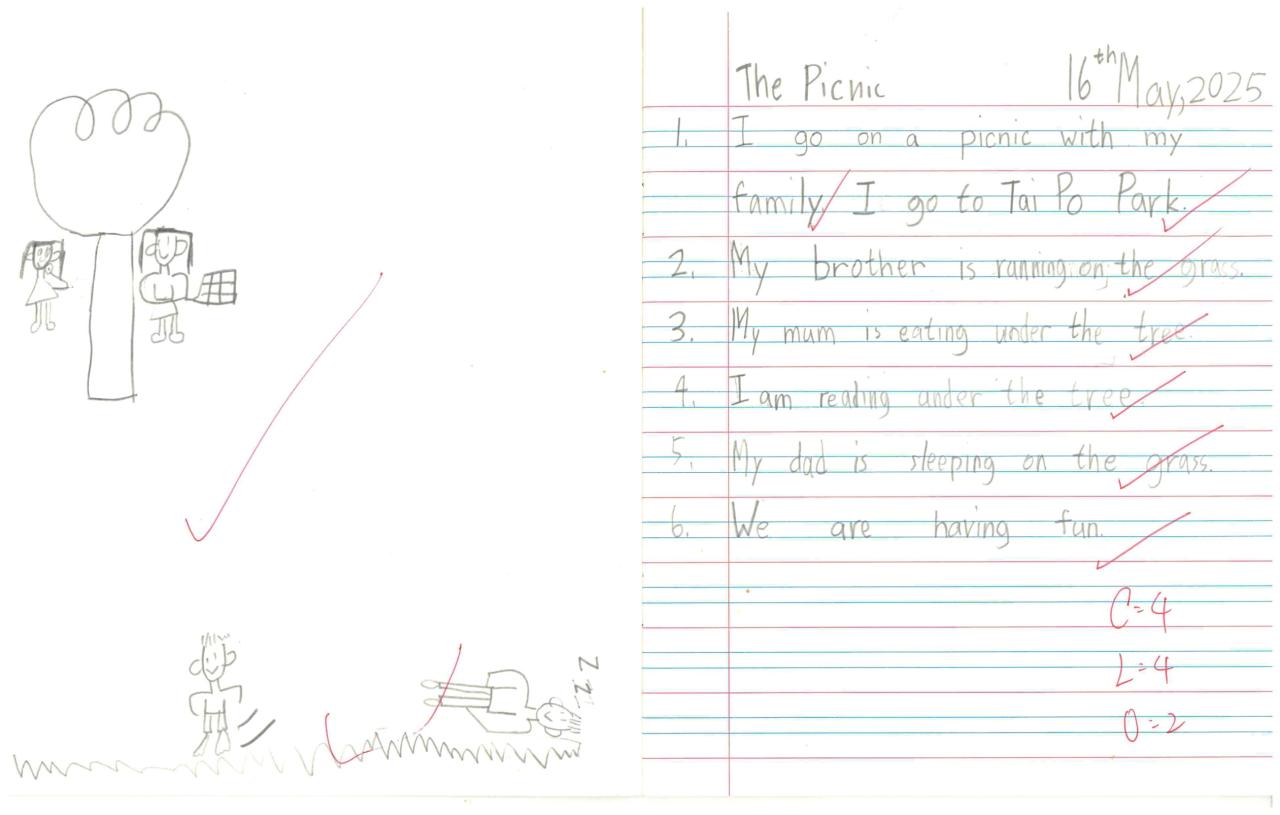 The Picnic 16th May, 2025
1. I go on a picnic with my
family. I go to Tai Po Park.
2. My brother is ranning on the grass.
3. My mum is eating under the tree.
4. I am reading under the tree.
5. My dad is sleeping on the grass.
6. We are having fun.
C=4
L=4
O=2
z z Z